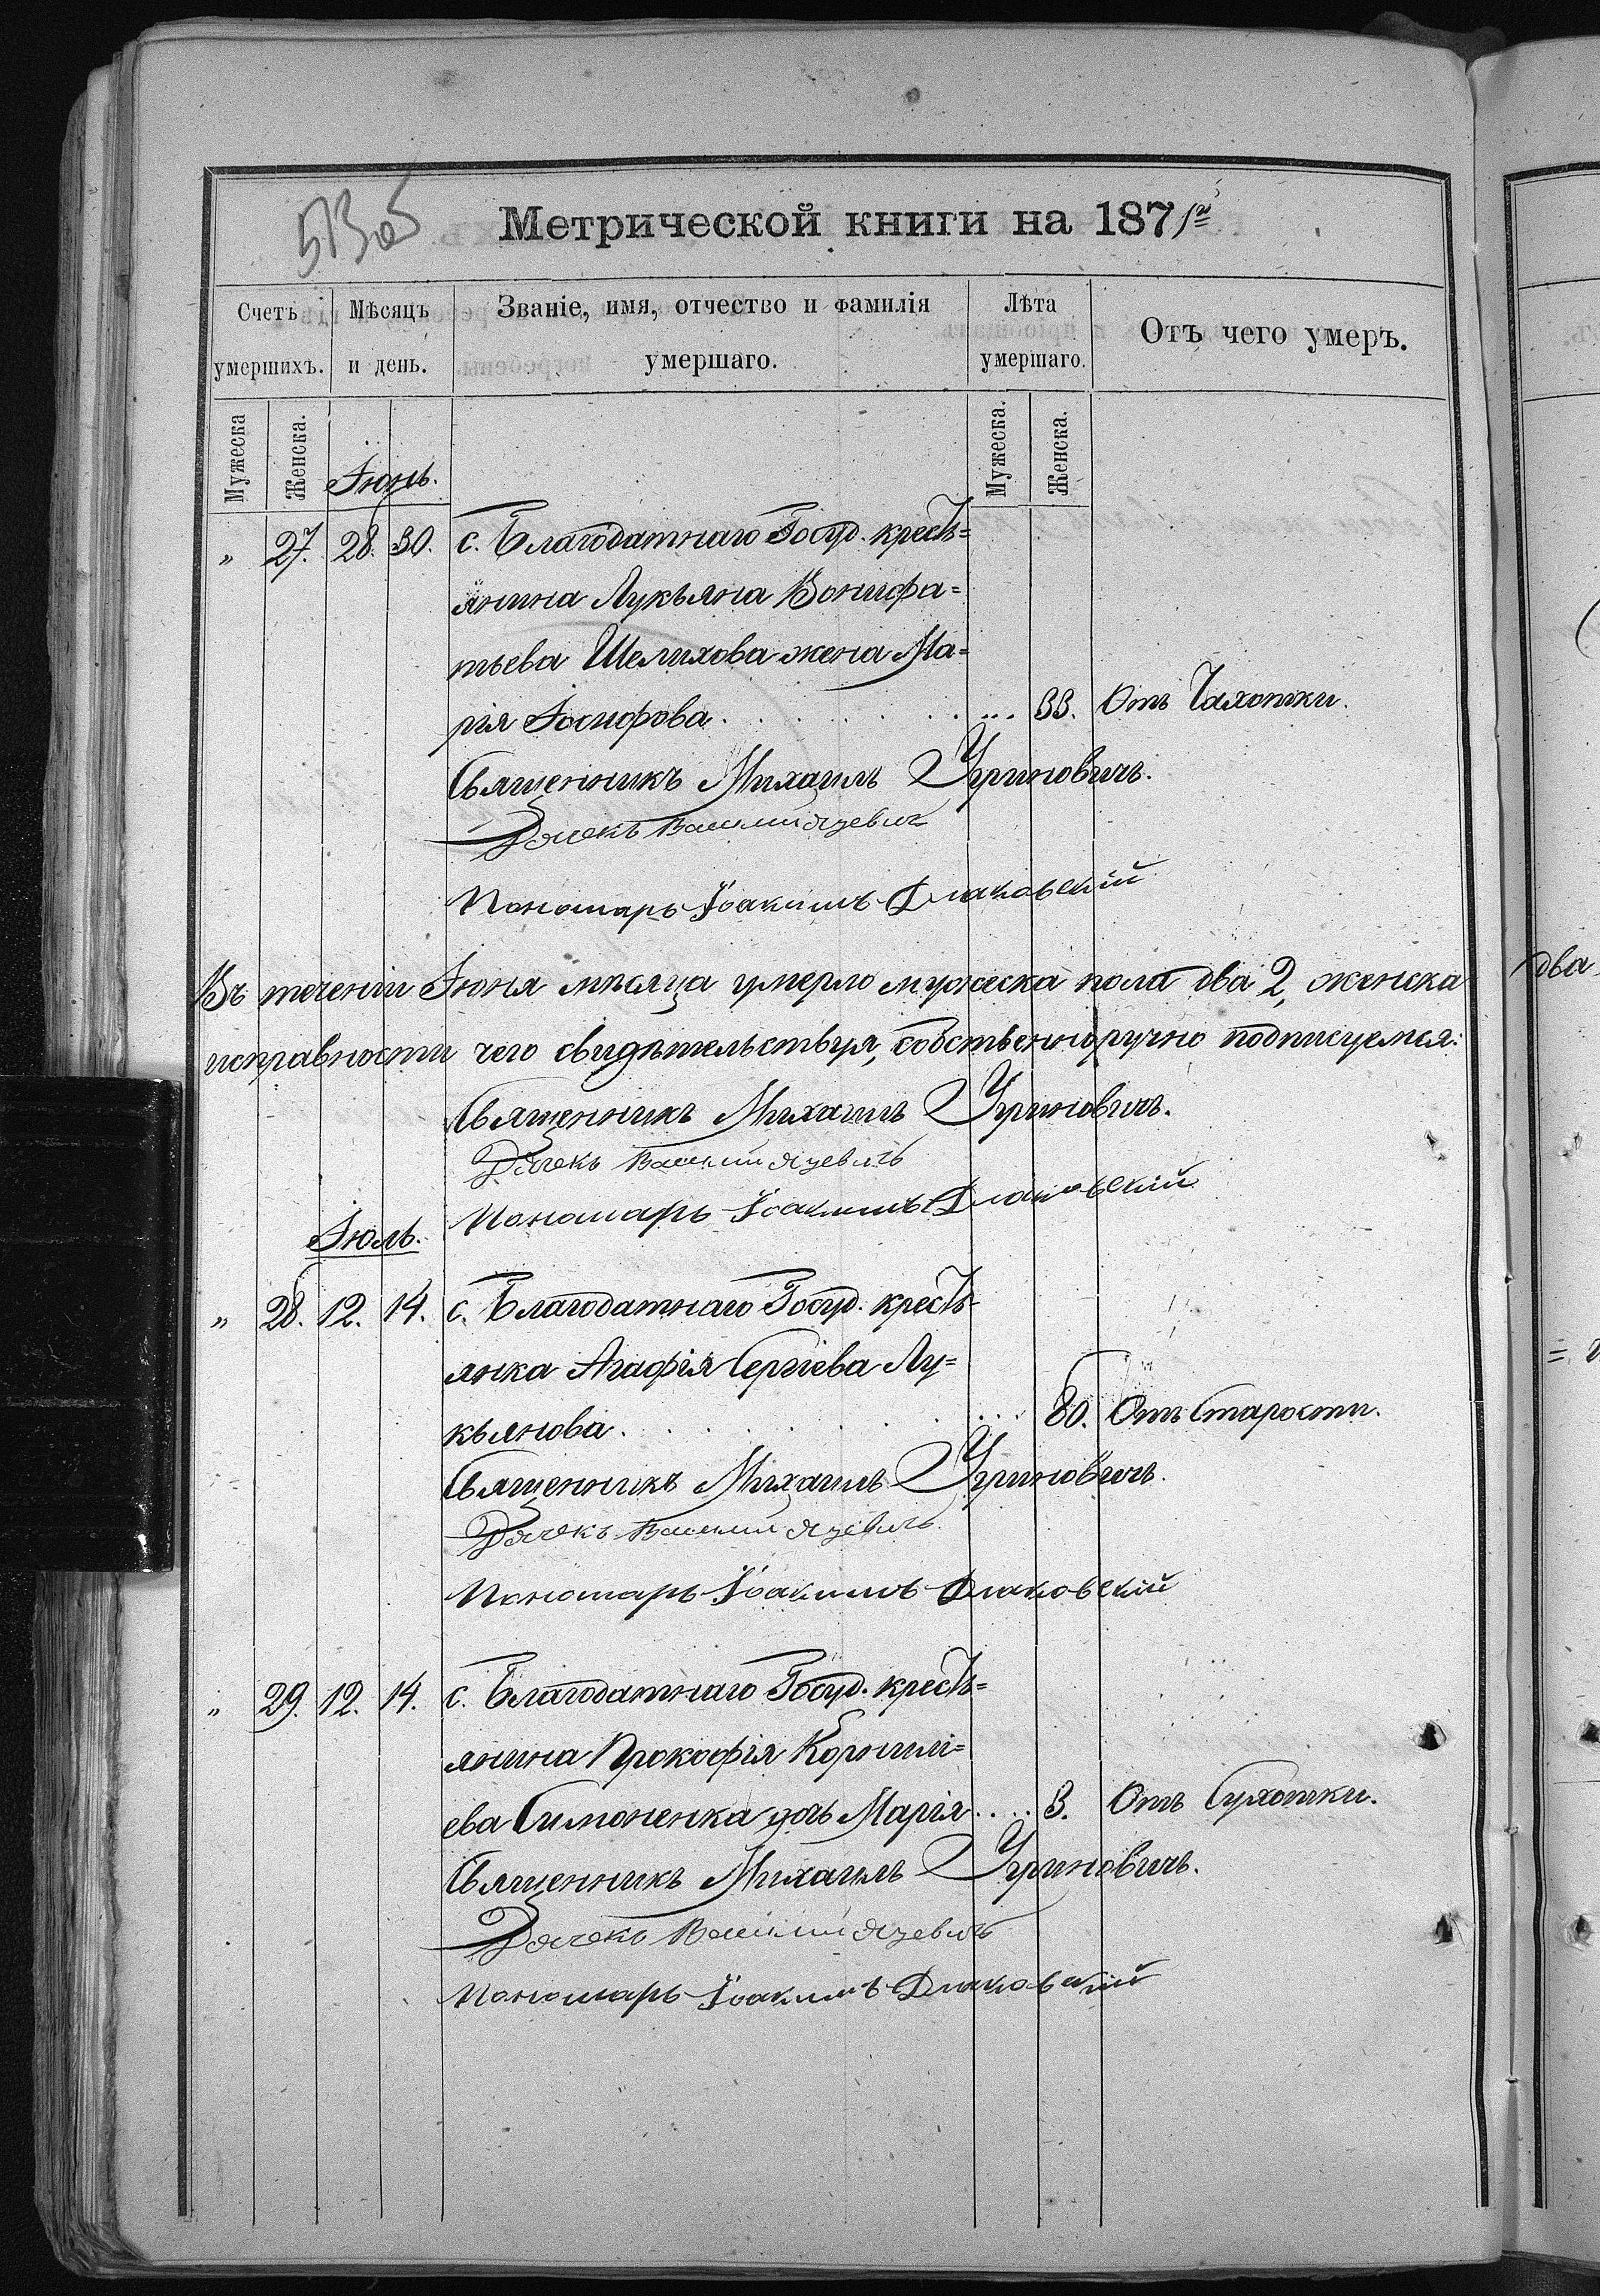 513об
Метрической книги на 1871й
Счетъ умершихъ.
Мѣсяцъ и день.
Званіе, имя, отчество и фамилія умершаго.
Лѣта умершаго.
Отъ чего умеръ.
Мужеска
Женска.
Мужеска.
Женска.
Іюнь.
„ 27. 28. 30. с. Благодатнаго Госуд. кресть=
янина Лукьяна Вонифа=
тьева Шелихова жена Ма=
рія Іосифова . . . . . . . . . 33. Отъ Чахотки.
Священникъ Михаилъ Угриновичъ.
Дячекъ Василій Язевичъ
Пономарь Іоакимъ Длаковскій
Въ теченіи Іюня мѣсяца умерло мужеска пола два 2, женска два
исправности чего свидѣтельствуя, собственноручно подписуемся:
Священникъ Михаилъ Угриновичъ.
Дячекъ Василій Язевичъ
Пономарь Іоакимъ Длаковскій
Іюль.
„ 28. 12. 14. с. Благодатнаго Госуд. кресть-
янка Агафія Сергіева Лу=
кьянова . . . . . . . . . 80. Отъ Старости.
Священникъ Михаилъ Угриновичъ.
Дячекъ Василій Язевичъ.
Пономарь Іоакимъ Длаковскій
„ 29. 12. 14. с. Благодатнаго Госуд. кресть=
янина Прокофія Корнили=
ева Симоненка дочь Марія . . . . 3. Отъ Сухотки.
Священникъ Михаилъ Угриновичъ.
Дячекъ Василій Язевичъ
Пономарь Іоакимъ Длаковскій